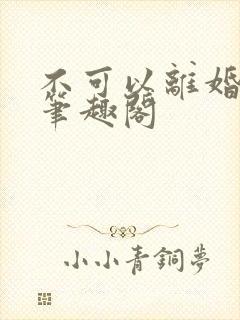 不可以離婚
筆趣閣
小小青銅夢